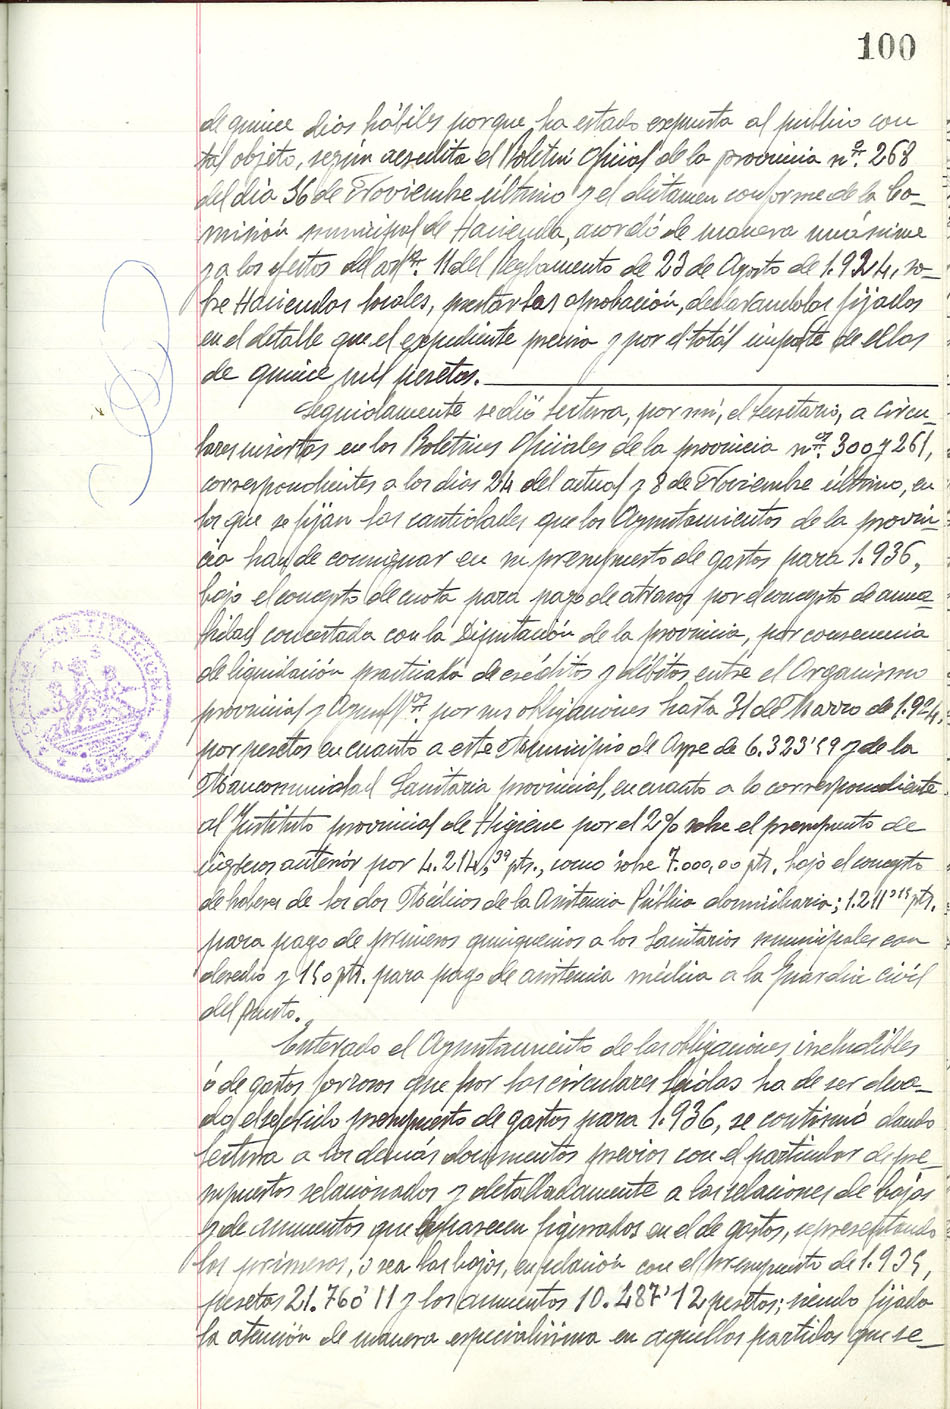 100
de quince dias hábiles porque ha estado expuesta al publico con
tal objeto, según acredita el Boletin Oficial de la provincia nº. 268
del dia 16 de Noviembre último y el dictamen conforme de la Co-
misión municipal de Hacienda, acordó de manera unánime
y a los efectos del artº. 11 del Reglamento de 23 de Agosto de 1.924, so-
bre Haciendas locales, prestarlas aprobación, declarandolas fijadas
en el detalle que el expediente precisa y por el total importe de ellas
de quince mil pesetas.
Seguidamente se dió lectura, por mi, el Secretario, a circu-
lares insertas en los Boletines Oficiales de la provincia nos. 300 y 261,
correspondientes a los dias 24 del actual y 8 de Noviembre último, en
las que se fijan las cantidades que los Ayuntamientos de la provin-
cia han de consignar en su presupuesto de gastos para 1.936,
bajo el concepto de cuota para pago de atrasos por el concepto de anua-
lidad concertada con la Diputación de la provincia, por consecuencia
de liquidación practicada de créditos y débitos entre el Organismo
provincial y Ayunttos. por sus obligaciones hasta 31 de Marzo de 1.924,
por pesetas en cuanto a este Municipio de Aspe de 6.323'59 y de la
Mancomunidad Sanitaria provincial, en cuanto a lo correspondiente
al Instituto provincial de Higiene por el 2% sobre el presupuesto de
ingresos anterior por 4.214,39 pts., como sobre 7.000,00 pts. bajo el concepto
de haberes de los dos Médicos de la Asistencia Pública domiciliaria;
para pago de primeros quinquenios a los Sanitarios municipales con
derecho y 150 pts. para pago de asistencia médica a la Guardia civil
del puesto.
Enterado el Ayuntamiento de las obligaciones ineludibles
ó de gastos forzosos que por las circulares leidas ha de ser dota-
do el referido presupuesto de gastos para 1.936, se continuó dando
lectura a los demás documentos previos con el particular de pre-
supuestos relacionados y detalladamente a las relaciones de bajas
y de aumentos que aparecen figurados en el de gastos, representando
los primeros, o sea las bajas, en relación con el presupuesto de 1.935,
pesetas 21.760'11 y los aumentos 10.487'12 pesetas; siendo fijada
la atención de manera especialisima en aquellas partidas que se-